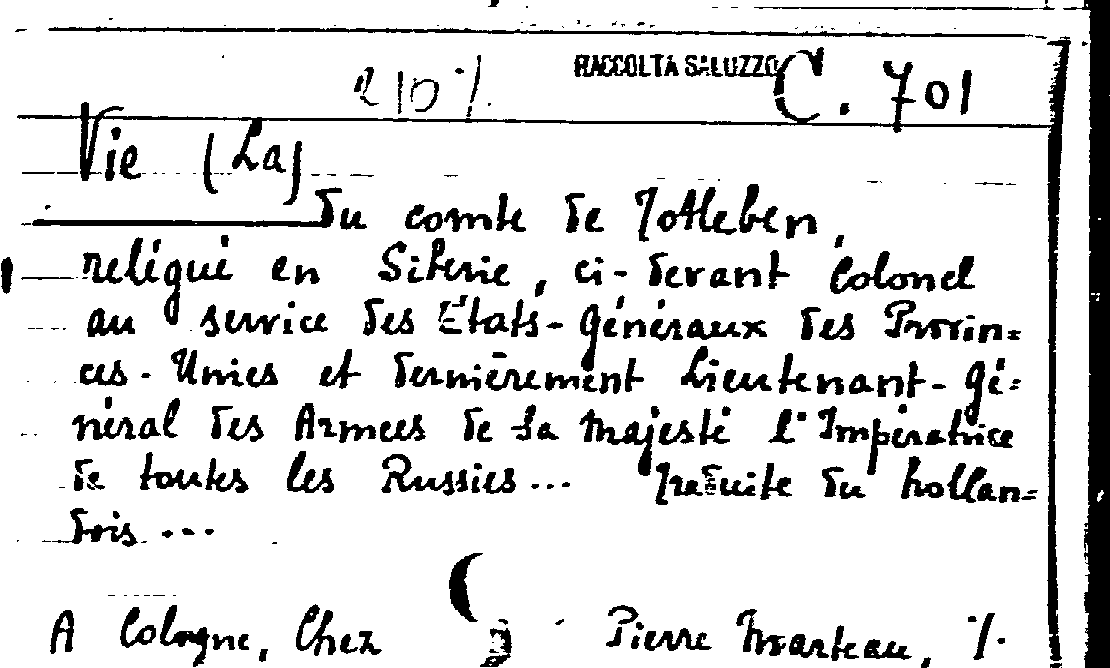 RACCOLTA SALUZZO C. 701
210 %
Vie (La)
du comte de Totleben,
relégué en Siberie, ci-devant Colonel
au service des États-Généraux des Provin=
ces-Unies et dernièrement Lieutenant-Gé=
néral des Armees de Sa Majesté l'Impératrice
de toutes les Russies... Traduite du hollan=
dois...
A Cologne, Chez Pierre Marteau, %.